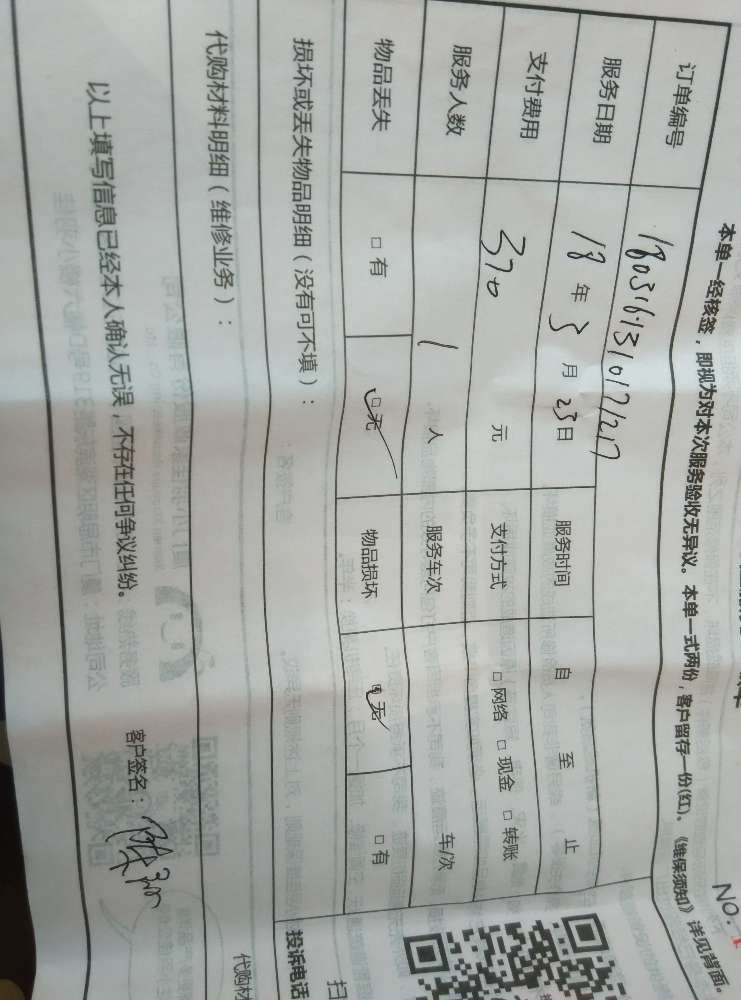 NO:
本单一经核签，即视为对本次服务验收无异议。本单一式两份，客户留存一份(红)。《维保须知》详见背面。
订单编号
服务日期 18 年 3 月 23 日 服务时间 自 至 止
支付费用 370 元 支付方式 □ 网络 □ 现金 □ 转账
服务人数 1 人 服务车次 车/次
物品丢失 □ 有 □ 无 物品损坏 □ 无 □ 有
损坏或丢失物品明细（没有可不填）： 投诉电话
扫
代购材料明细（维修业务）： 代购材
以上填写信息已经本人确认无误，不存在任何争议纠纷。 客户签名：